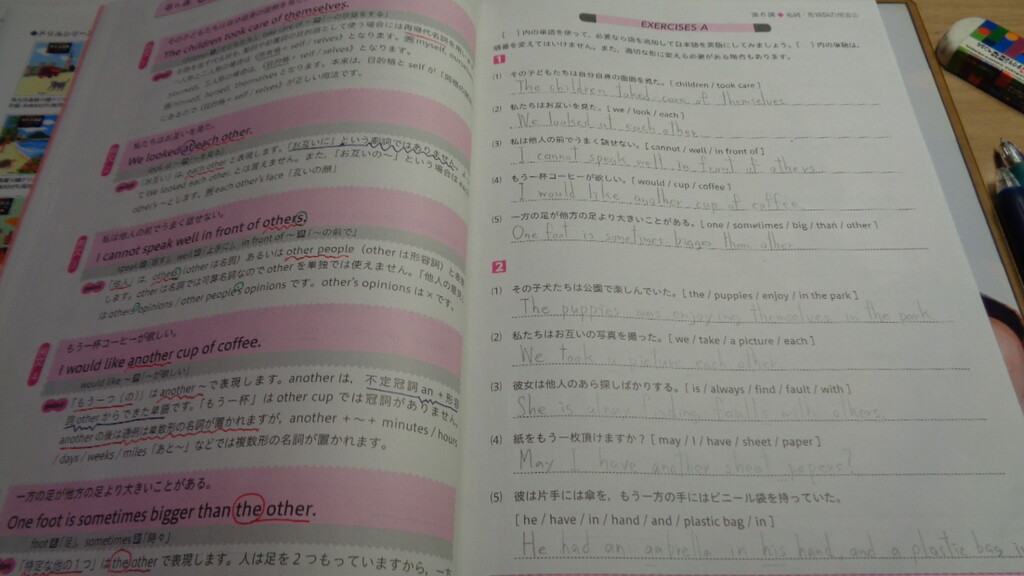 The children took care of themselves.
私たちはお互いを見た。
We looked at each other.
「お互い」は each other と表現します。「お互いに」という副詞ではありません。
て We looked each other とは言えません。また、「お互いの〜」という場合は
other's 〜とします。例 each other's face「互いの顔」
私は他人の前でうまく話せない。
I cannot speak well in front of others.
speak 動「話す」 well 副「上手に」 in front of 〜 「〜の前で」
「他人」は、others (other は名詞) あるいは other people (other は形容詞) と表
します。other は名詞では可算名詞なので other を単独では使えません。「他人の意見」
は others' opinions / other people's opinions です。other's opinions は×です。
もう一杯コーヒーが欲しい。
I would like another cup of coffee.
would like 〜 「〜が欲しい」
「もう一つ (の)」は another 〜で表現します。another は、不定冠詞 an + 形容
詞 other からできた単語です。「もう一杯」は other cup では冠詞がありません。
another の後は通例は単数形の名詞が置かれますが、another + 〜 + minutes / hours
/ days / weeks / miles「あと〜」などでは複数形の名詞が置かれます。
一方の足が他方の足より大きいことがある。
One foot is sometimes bigger than the other.
foot 名「足」 sometimes 副「時々」
「特定な他の1つ」は the other で表現します。人は足を2つもっていますから、一
第6課 ◆ 名詞・形容詞の用法②
EXERCISES A
[ ] 内の単語を使って、必要なら語を追加して日本語を英語にしてみましょう。[ ] 内の単語は、
順番を変えてはいけません。また、適切な形に変える必要がある場合もあります。
1
(1) その子どもたちは自分自身の面倒を見た。[ children / took care ]
The children taked care of themselves
(2) 私たちはお互いを見た。[ we / look / each ]
We looked at each other
(3) 私は他人の前でうまく話せない。[ cannot / well / in front of ]
I cannot speak well in front of others
(4) もう一杯コーヒーが欲しい。[ would / cup / coffee ]
I would like another cup of coffee
(5) 一方の足が他方の足より大きいことがある。[ one / sometimes / big / than / other ]
One foot is sometimes bigger than other
2
(1) その子犬たちは公園で楽しんでいた。[ the / puppies / enjoy / in the park ]
The puppies was enjoying themselves in the park
(2) 私たちはお互いの写真を撮った。[ we / take / a picture / each ]
We took a picture each other
(3) 彼女は他人のあら探しばかりする。[ is / always / find / fault / with ]
She is alway finding faults with others.
(4) 紙をもう一枚頂けますか？[ may / I / have / sheet / paper ]
May I have another sheet papers?
(5) 彼は片手には傘を，もう一方の手にはビニール袋を持っていた。
[ he / have / in / hand / and / plastic bag / in ]
He had an umbrella in his hand and a plastic bag